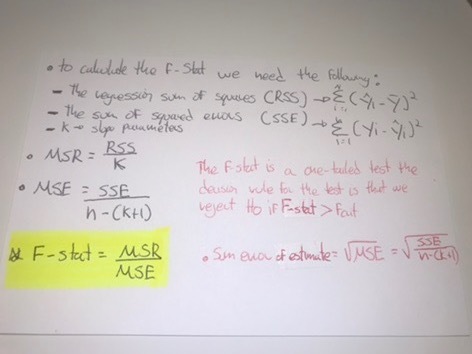 • to calculate the F-Stat we need the following:
– The regression sum of squares (RSS) → Σⁿᵢ₌₁ (Ŷi - Ȳ)²
– The sum of squared errors (SSE) → Σⁿᵢ₌₁ (Yi - Ŷi)²
– K → slope parameters
• MSR = RSS / K
• MSE = SSE / n-(k+1)
F-stat = MSR / MSE
The F-stat is a one-tailed test the
decision rule for the test is that we
reject Ho if F-stat > Fcrit
• error of estimate = √MSE = √SSE / n-(k+1)